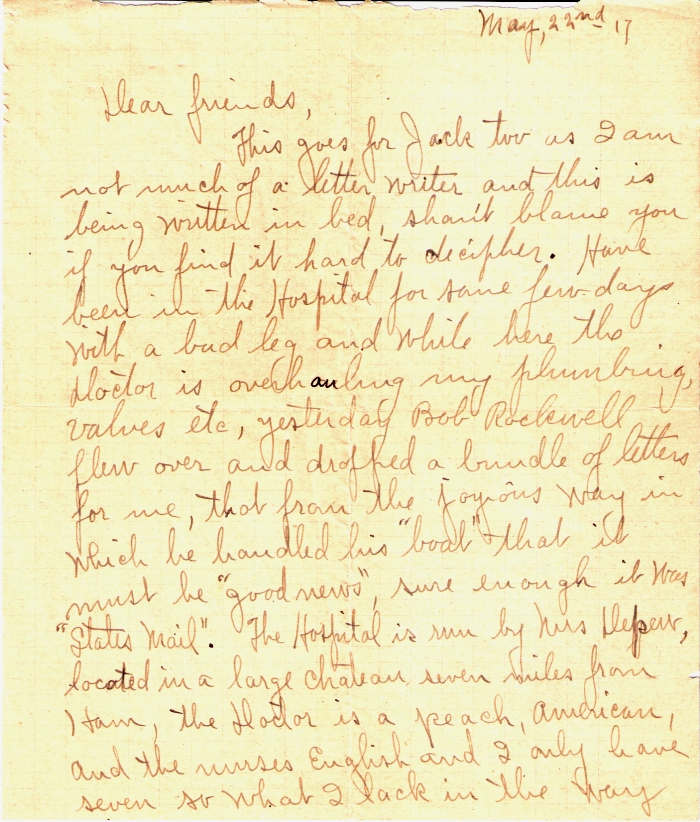 May, 22nd 17
Dear friends,
This goes for Jack too as I am
not much of a letter writer and this is
being written in bed, shan't blame you
if you find it hard to decipher. Have
been in the Hospital for some few days
with a bad leg and while here the
Doctor is overhauling my plumbing,
valves etc, yesterday Bob Rockwell
flew over and dropped a bundle of letters
for me, that from the joyious way in
which he handled his "boat" that it
must be "good news", sure enough it was
"States Mail". The Hospital is run by Mrs Depew,
located in a large chateau seven miles from
Ham, the Doctor is a peach, American,
and the nurses English and I only have
seven so what I lack in the way